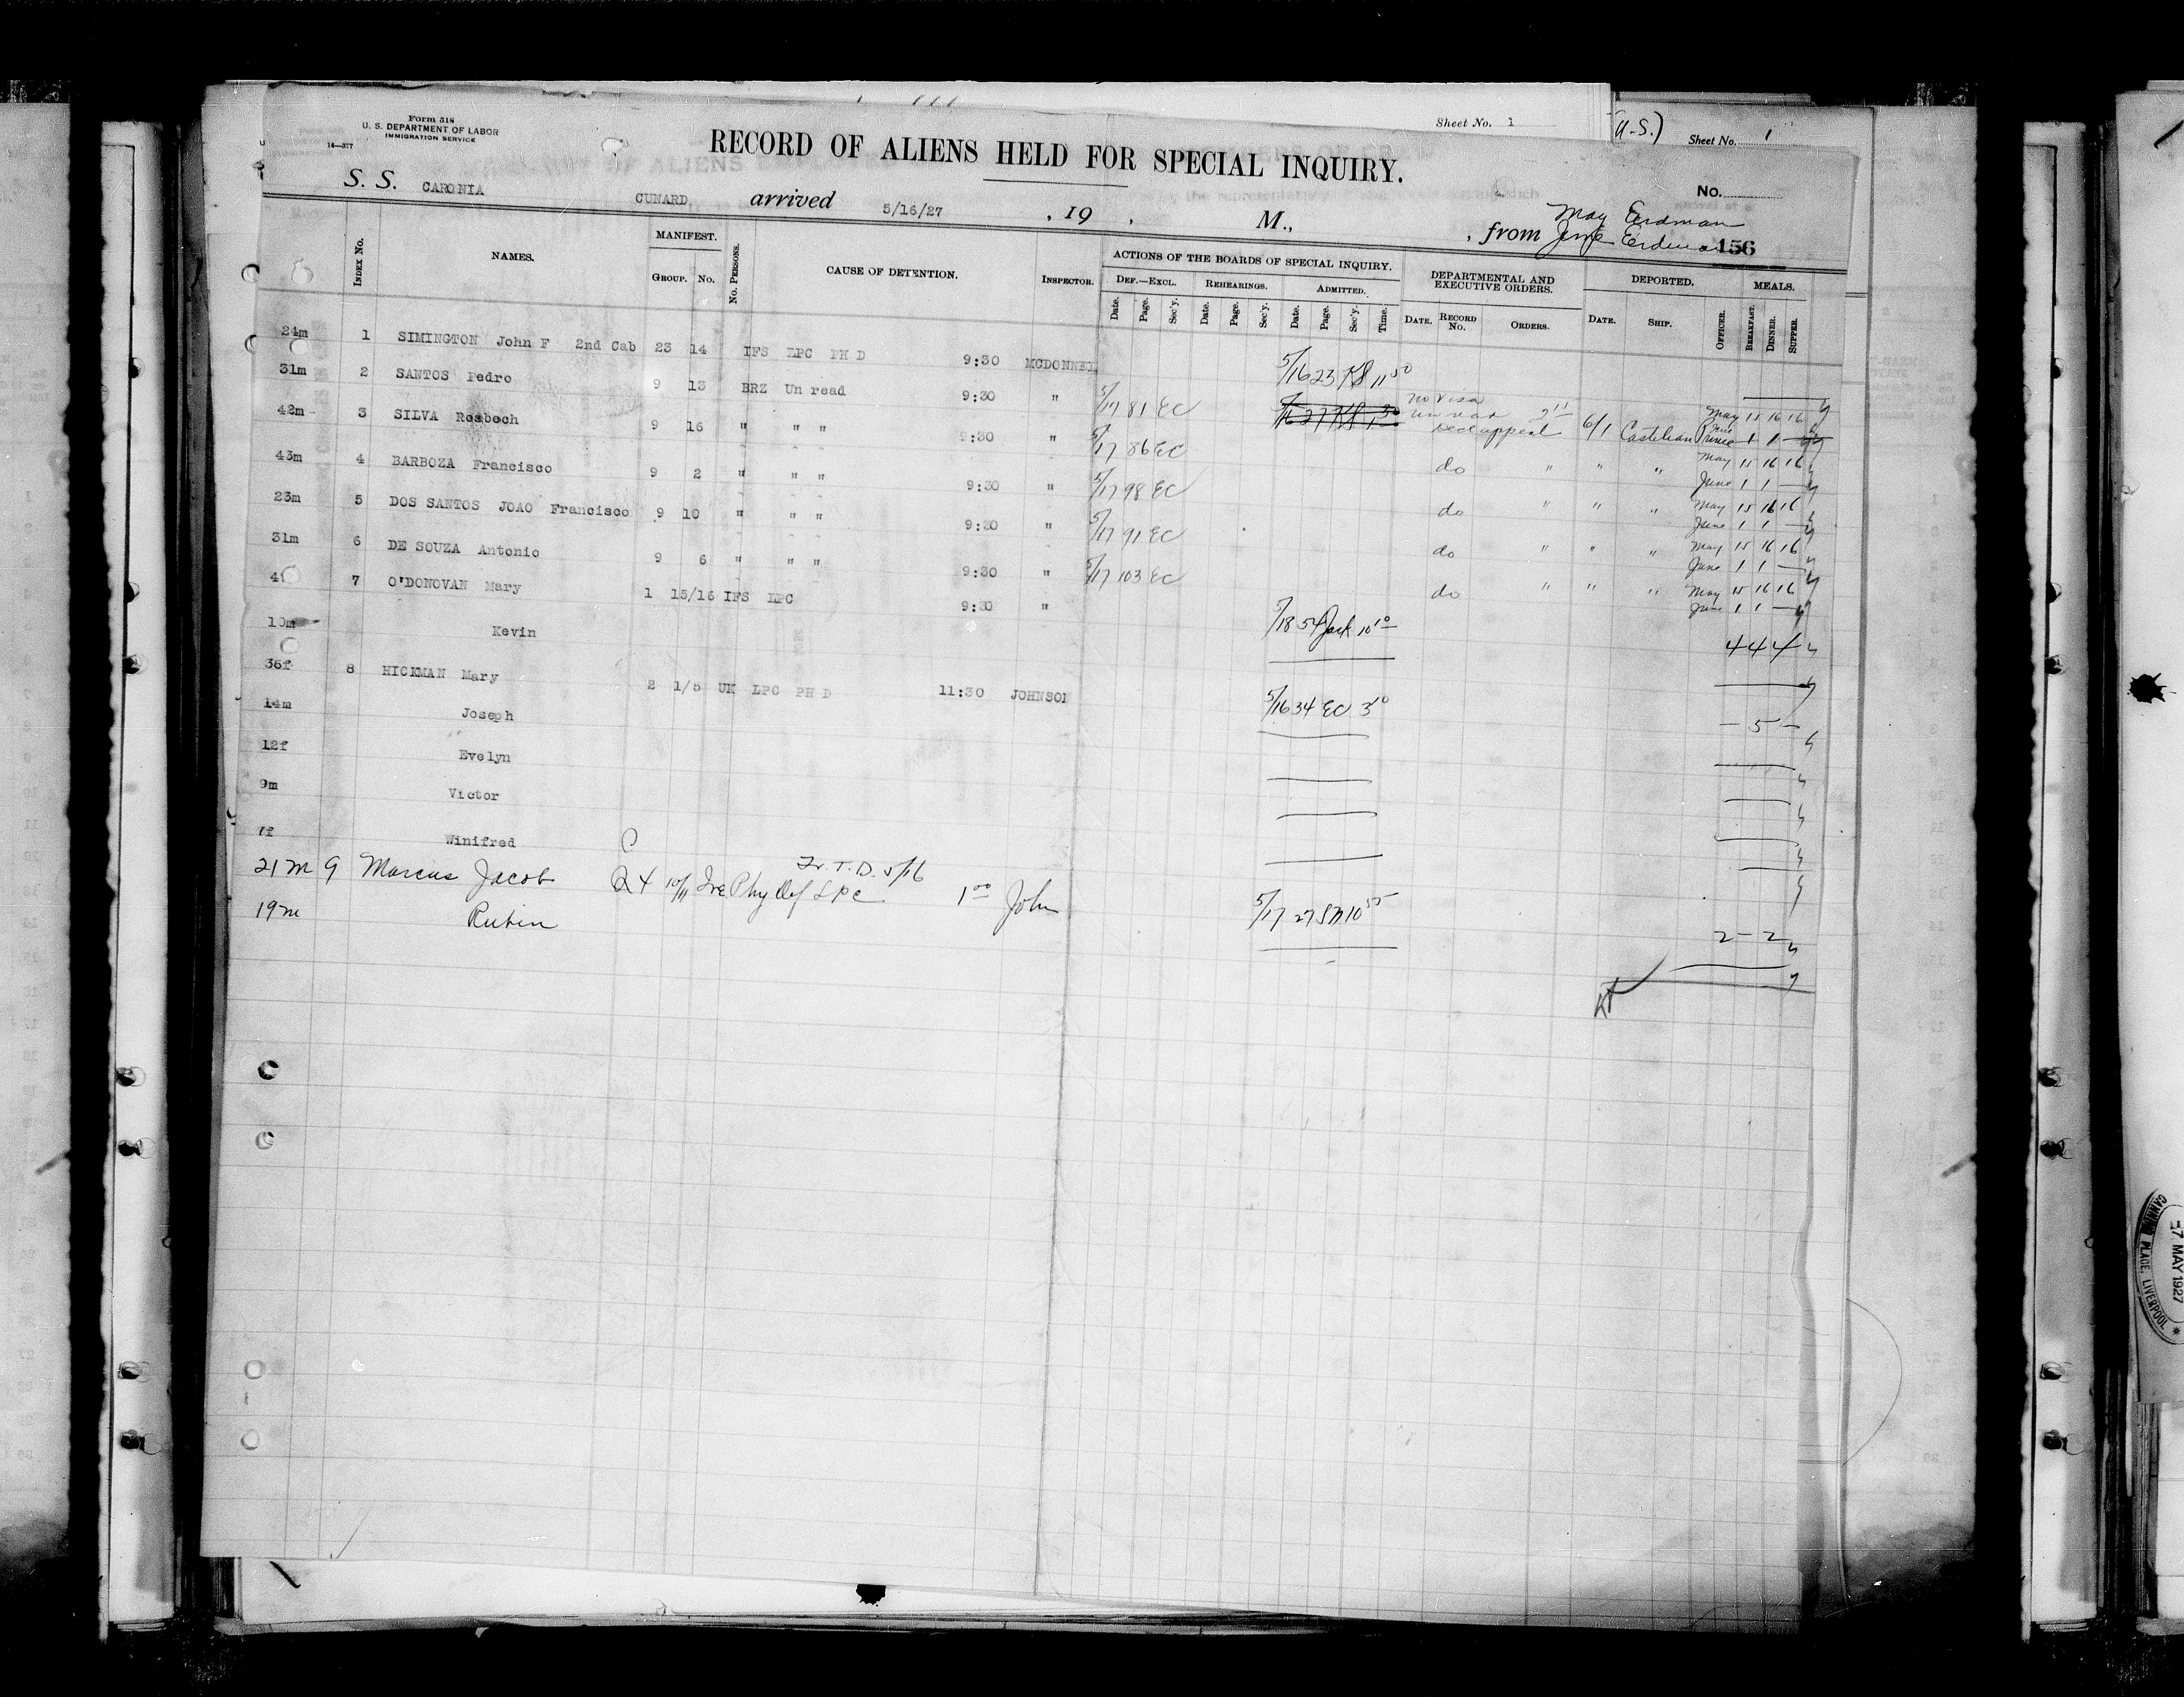 Sheet No. 1
(U.S.) Sheet No. 1
Form 518
U. S. DEPARTMENT OF LABOR
IMMIGRATION SERVICE
14—377
RECORD OF ALIENS HELD FOR SPECIAL INQUIRY.
No.
S. S. CARONIA CUNARD arrived 5/16/27 , 19 , M., , from
May Erdman
June Erdman
156
INDEX No. NAMES. MANIFEST. GROUP. No. No. PERSONS. CAUSE OF DETENTION. INSPECTOR. ACTIONS OF THE BOARDS OF SPECIAL INQUIRY. DEPARTMENTAL AND EXECUTIVE ORDERS. DEPORTED. MEALS.
DEF.—EXCL. REHEARINGS. ADMITTED.
Date. Page. Sec'y. Date. Page. Sec'y. Date. Page. Sec'y. Time. DATE. RECORD No. ORDERS. DATE. SHIP. OFFICER. BREAKFAST. DINNER. SUPPER.
24m 1 SIMINGTON John F 2nd Cab 23 14 IFS LPC PH D 9:30 MCDONNEL 5/16 23 KS 11 50
31m 2 SANTOS Pedro 9 13 BRZ Un read 9:30 " 5/17 81 EC No Visa un read 6/1 Castelian May 15 16 16
appeal June 1 1 —
42m 3 SILVA Rosbech 9 16 " " " 9:30 " 5/17 86 EC do " " " May 15 16 16
June 1 1 —
43m 4 BARBOZA Francisco 9 2 " " " 9:30 " 5/17 98 EC do " " " May 15 16 16
June 1 1 —
23m 5 DOS SANTOS JOAO Francisco 9 10 " " " 9:30 " 5/17 91 EC do " " " May 15 16 16
June 1 1 —
31m 6 DE SOUZA Antonio 9 6 " " " 9:30 " 5/17 103 EC do " " " May 15 16 16
June 1 1 —
7 O'DONOVAN Mary 1 15/16 IFS LPC 9:30 " 5/18 54 Jack 10 10 4 4 4
10m Kevin
36f 8 HICKMAN Mary 2 1/5 UK LPC PH D 11:30 JOHNSON 5/16 34 EC 3 10 — 5 —
14m Joseph
12f Evelyn
9m Victor
7f Winifred
Tr. T. D. 5/16
21m 9 Marcus Jacob 24 10/11 Ire Phy Def LPC 1 00 John 5/17 27 SM 10 55 2 — 2
19m Rubin
-7 MAY 1927
CANNING PLACE, LIVERPOOL